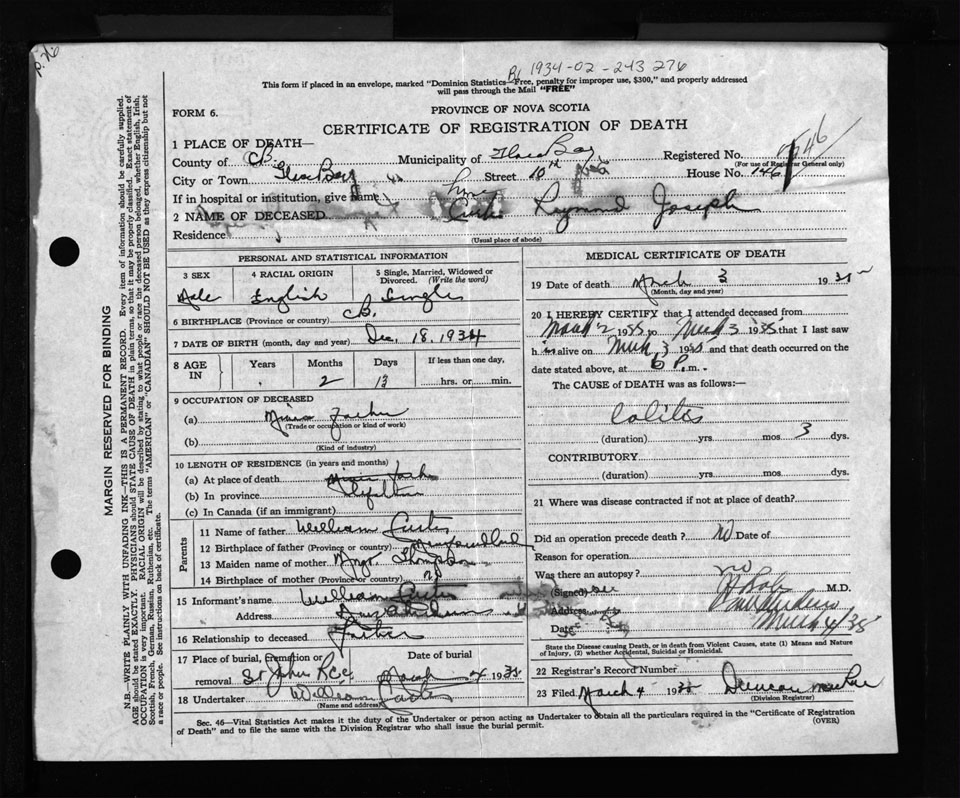 P. 76
B1 1934-02-243 276
This form if placed in an envelope, marked "Dominion Statistics—Free, penalty for improper use, $300," and properly addressed
will pass through the Mail "FREE"
FORM 6.
PROVINCE OF NOVA SCOTIA
CERTIFICATE OF REGISTRATION OF DEATH
1 PLACE OF DEATH—
County of C.B. Municipality of Glace Bay Registered No. 546
(For use of Registrar General only)
City or Town Glace Bay Street 10th House No. 146
If in hospital or institution, give Name
2 NAME OF DECEASED Curtis Raymond Joseph
Residence
(Usual place of abode)
PERSONAL AND STATISTICAL INFORMATION
3 SEX Male
4 RACIAL ORIGIN English
5 Single, Married, Widowed or Divorced. (Write the word) Single
6 BIRTHPLACE (Province or country) C.B.
7 DATE OF BIRTH (month, day and year) Dec. 18. 1934
8 AGE IN Years Months 2 Days 13 If less than one day, hrs. or min.
9 OCCUPATION OF DECEASED
(a)
(Trade or occupation or kind of work)
(b)
(Kind of industry)
10 LENGTH OF RESIDENCE (in years and months)
(a) At place of death
(b) In province
(c) In Canada (if an immigrant)
Parents
11 Name of father William Curtis
12 Birthplace of father (Province or country) Newfoundland
13 Maiden name of mother Thompson
14 Birthplace of mother (Province or country)
15 Informant's name William Curtis
Address
16 Relationship to deceased Father
17 Place of burial, cremation or removal St John Date of burial March 4 1935
18 Undertaker William Curtis
(Name and address)
MEDICAL CERTIFICATE OF DEATH
19 Date of death March 3 1935
(Month, day and year)
20 I HEREBY CERTIFY that I attended deceased from
March 2 1935 to March 3 1935 that I last saw
him alive on March 3 1935 and that death occurred on the
date stated above, at 6 P. m.
The CAUSE of DEATH was as follows:—
Colitis
(duration) yrs. mos. 3 dys.
CONTRIBUTORY
(duration) yrs. mos. dys.
21 Where was disease contracted if not at place of death?
Did an operation precede death? No Date of
Reason for operation
Was there an autopsy? no
(Signed) M.D.
Address
Date March 4/35
State the Disease causing Death, or in death from Violent Causes, state (1) Means and Nature
of Injury, (2) whether Accidental, Suicidal or Homicidal.
22 Registrar's Record Number
23 Filed March 4 1935 Duncan
(Division Registrar)
Sec. 46—Vital Statistics Act makes it the duty of the Undertaker or person acting as Undertaker to obtain all the particulars required in the "Certificate of Registration
of Death" and to file the same with the Division Registrar who shall issue the burial permit. (OVER)
MARGIN RESERVED FOR BINDING
N.B.—WRITE PLAINLY WITH UNFADING INK—THIS IS A PERMANENT RECORD. Every item of information should be carefully supplied.
AGE should be stated EXACTLY. PHYSICIANS should STATE CAUSE OF DEATH in plain terms, so that it may be properly classified. Exact statement of
OCCUPATION is very important. RACIAL ORIGIN will be described by stating to what people or race the deceased person belonged, whether English, Irish,
Scottish, French, German, Russian, Ruthenian, etc. The terms "AMERICAN" or "CANADIAN" SHOULD NOT BE USED as they express citizenship but not
a race or people. See instructions on back of certificate.